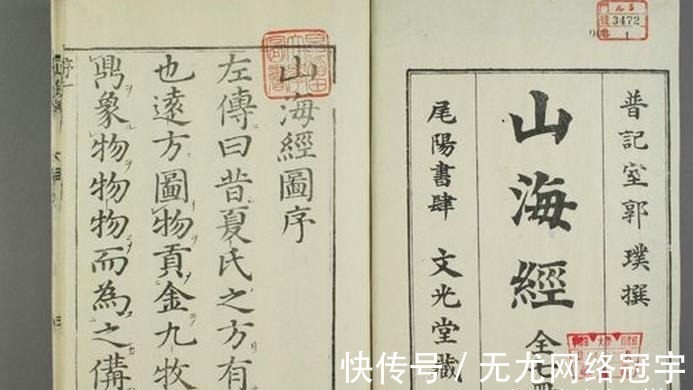 3472
1
普記室郭璞撰
山海經 全
尾陽書肆 文光堂藏
山海經圖序
左傳曰昔夏氏之方有
也遠方圖物貢金九牧
鼎象物物物而為之備
序一
快传号 / 无尤网络冠宇